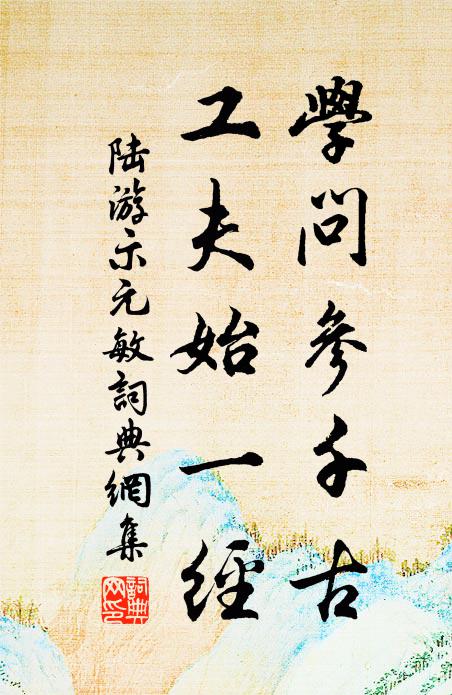 學問參千古
工夫始一經
陆游示元敏詞典網集
詞典